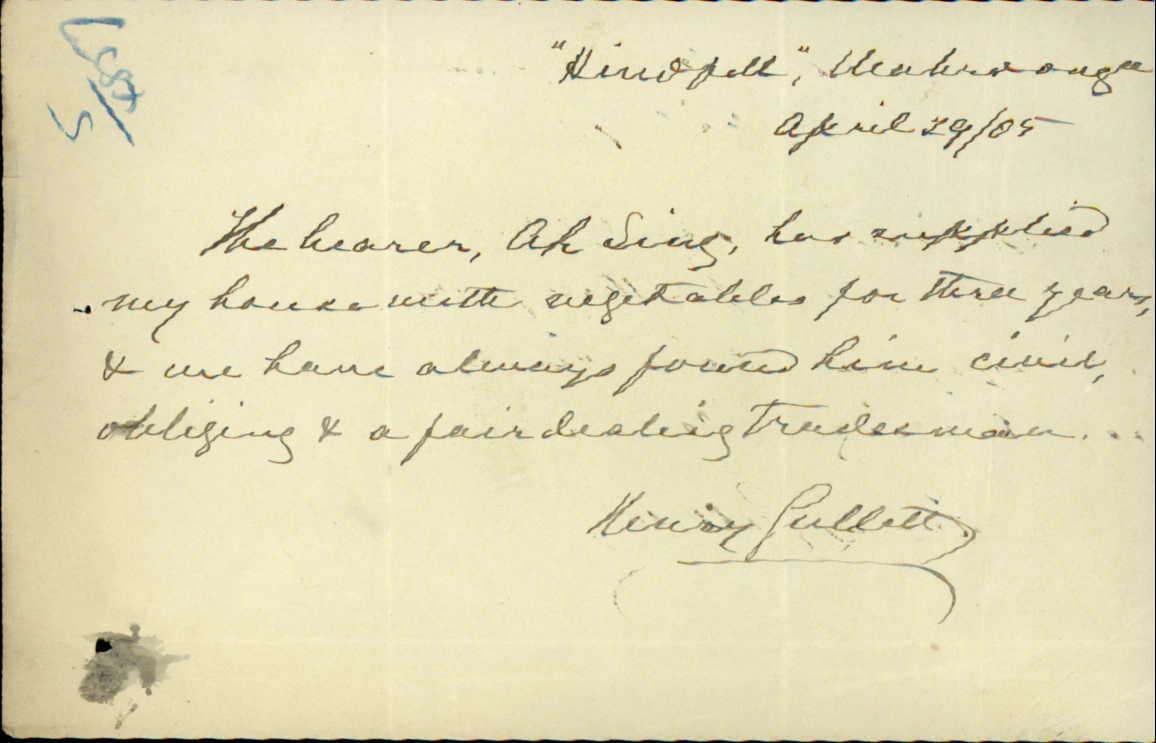 "Hindfell", Wahroonga
April 29/05
The bearer, Ah Sing, has supplied
my house with vegetables for three years,
& we have always found him civil,
obliging & a fair dealing tradesman.
Henry Gullett